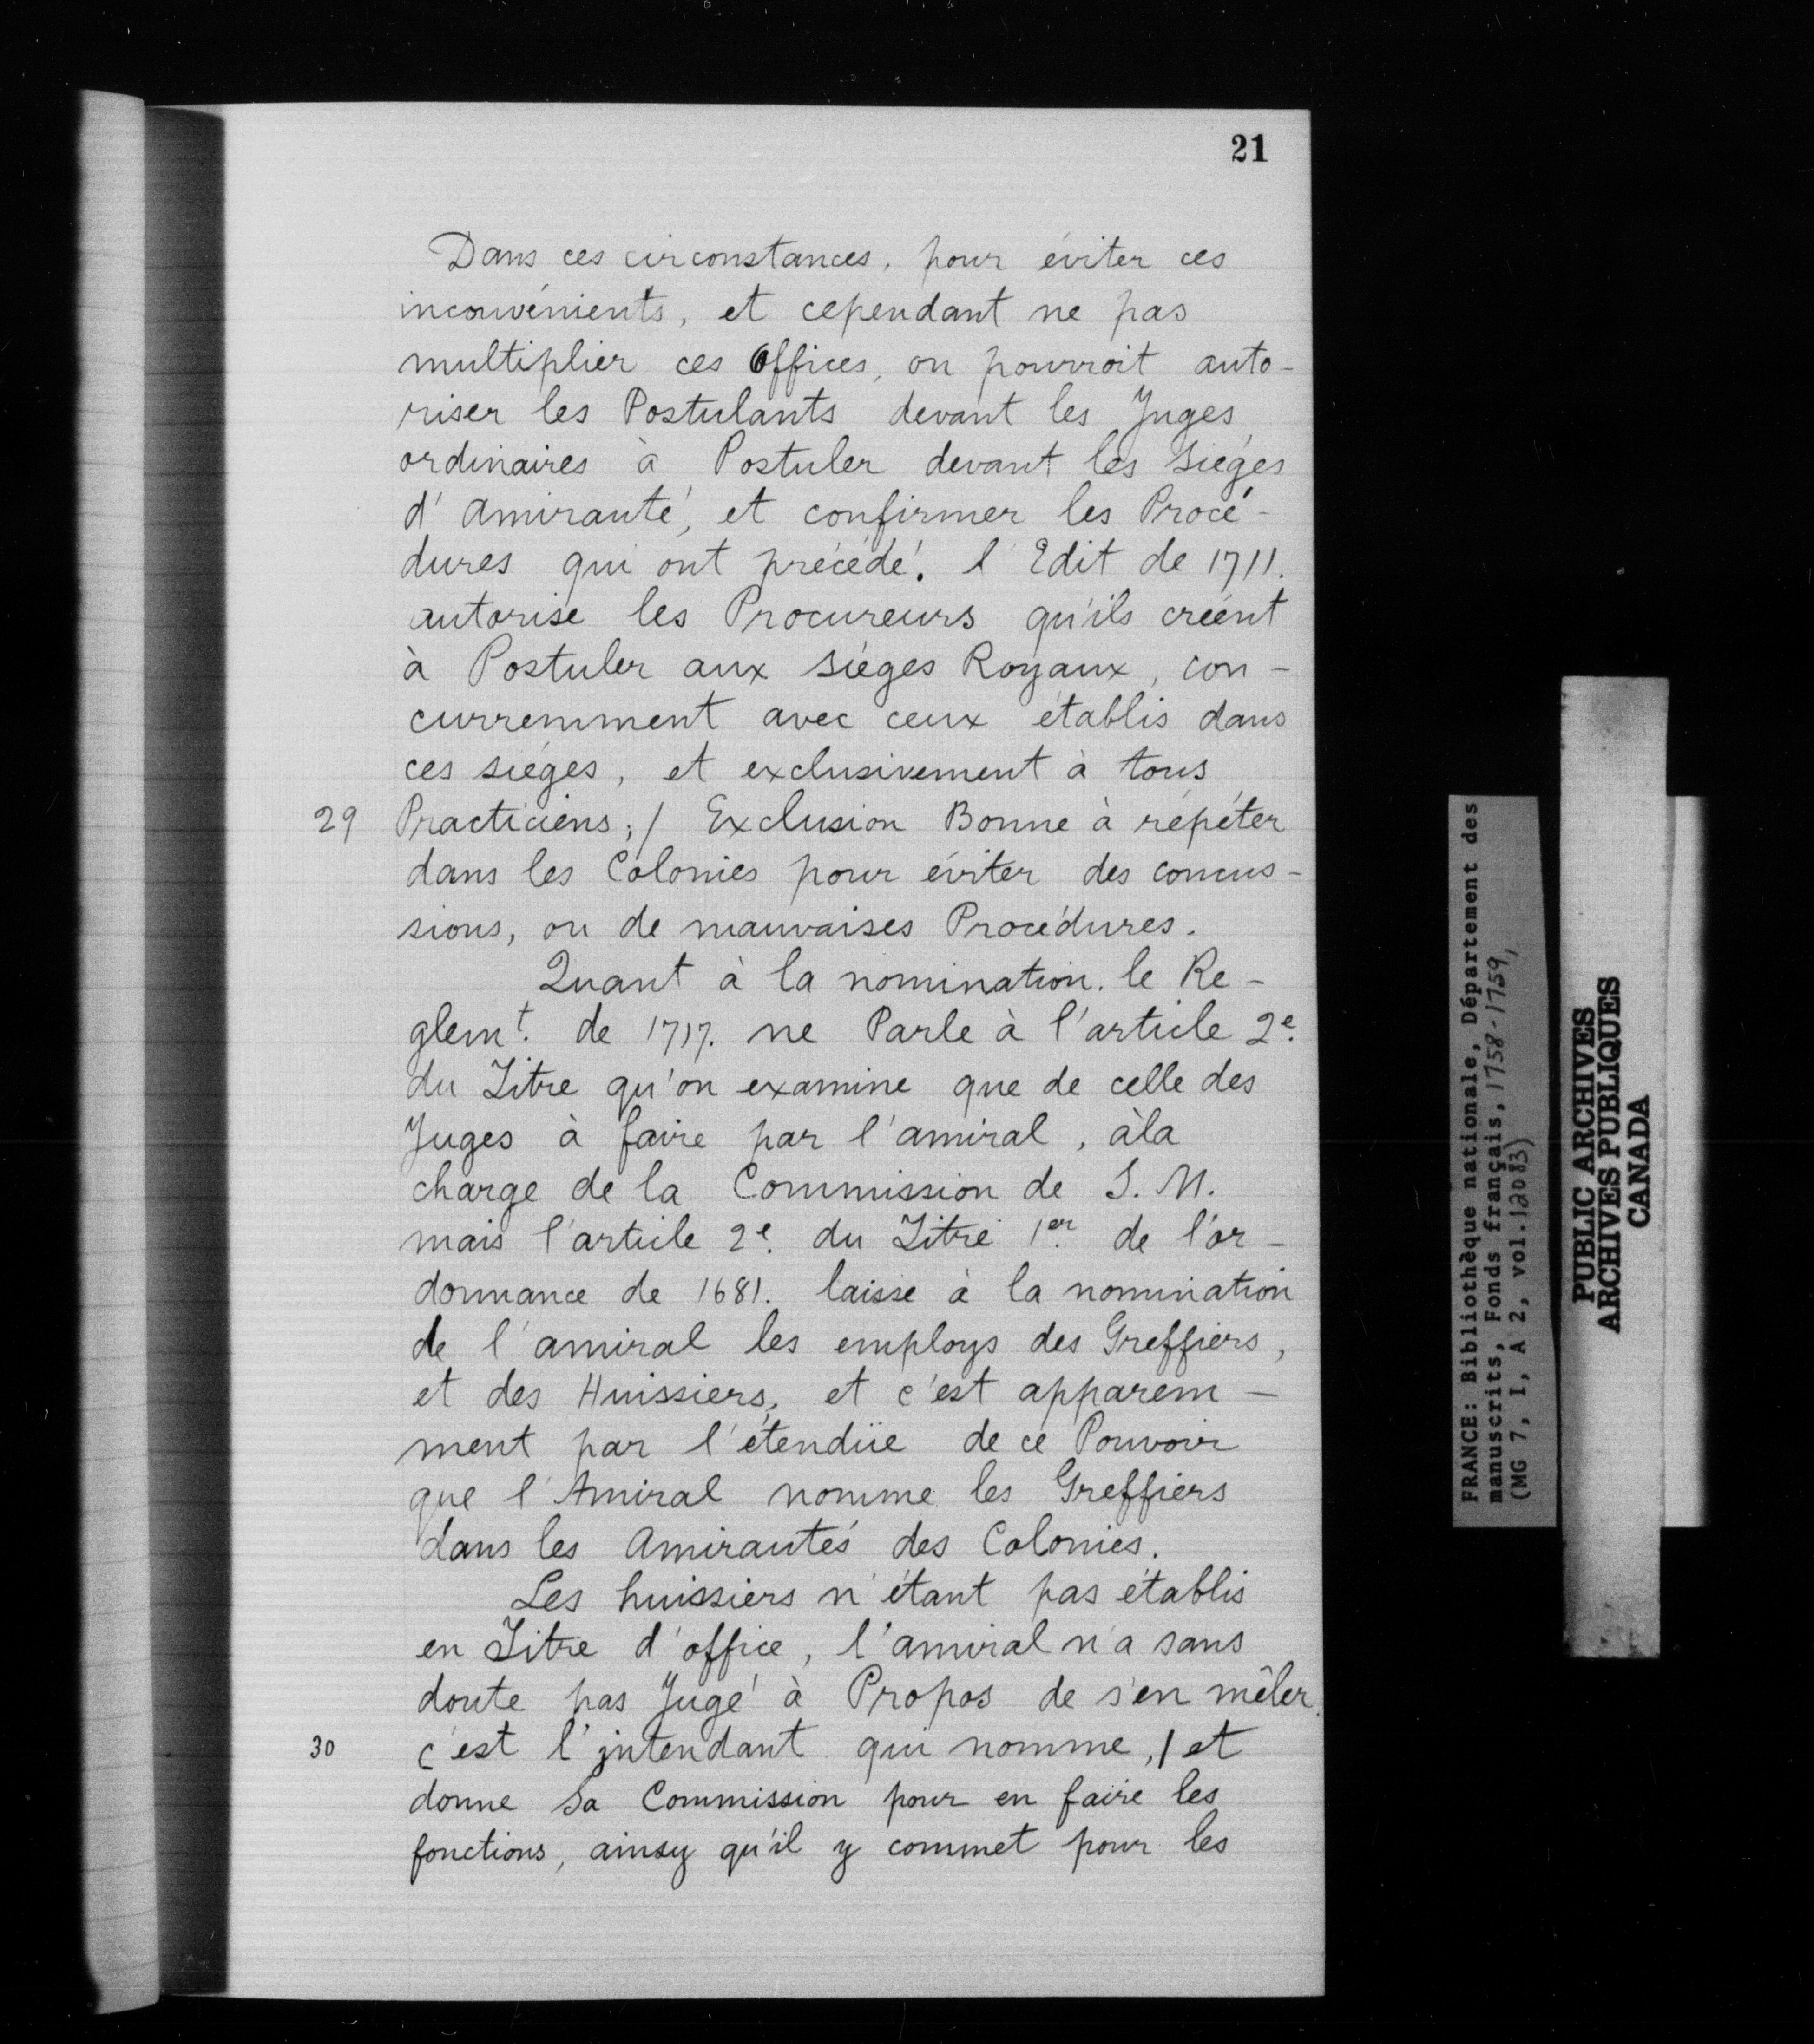 21
Dans ces circonstances, pour éviter ces
inconvénients, et cependant ne pas
multiplier ces Offices, on pourroit auto-
riser les Postulants devant les Juges
ordinaires à Postuler devant les sièges
d'amirauté, et confirmer les Procé-
dures qui ont précédé. l'Edit de 1711.
autorise les Procureurs qu'ils créent
à Postuler aux sièges Royaux, con-
curremment avec ceux établis dans
ces sièges, et exclusivement à tous
29 Practiciens; / Exclusion Bonne à répéter
dans les Colonies pour éviter des concus-
sions, ou de mauvaises Procédures.
Quant à la nomination. le Re-
glemt. de 1717. ne Parle à l'article 2e.
du Titre qu'on examine que de celle des
Juges à faire par l'amiral, àla
charge de la Commission de S. M.
mais l'article 2e. du Titre 1er. de l'or-
donnance de 1681. laisse à la nomination
de l'amiral les employs des Greffiers,
et des Huissiers, et c'est apparem-
ment par l'étendüe de ce Pouvoir
que l'Amiral nomme les Greffiers
dans les Amirautés des Colonies.
Les huissiers n'étant pas établis
en Titre d'office, l'amiral n'a sans
doute pas Jugé à Propos de s'en mêler.
30 c'est l'jntendant qui nomme, / et
donne Sa Commission pour en faire les
fonctions, ainsy qu'il y commet pour les
FRANCE: Bibliothèque nationale, Département des
manuscrits, Fonds français, 1758-1759,
(MG 7, I, A 2, vol. 12083)
PUBLIC ARCHIVES
ARCHIVES PUBLIQUES
CANADA